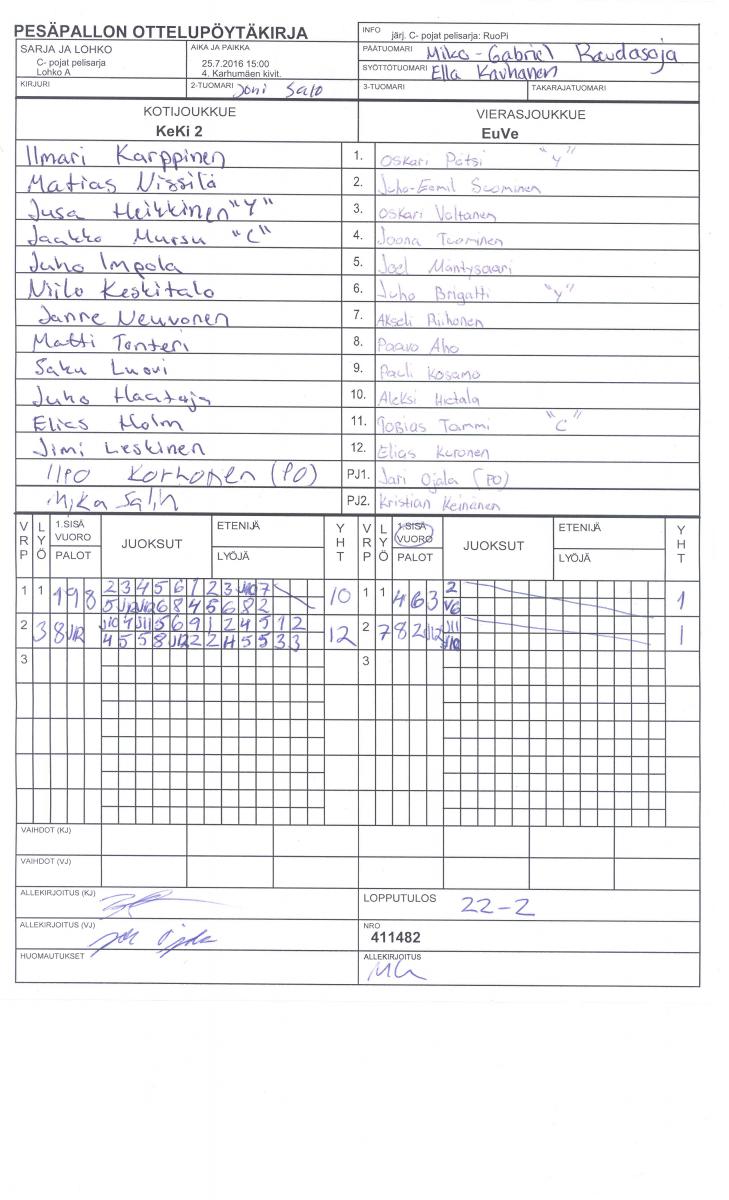 PESÄPALLON OTTELUPÖYTÄKIRJA
INFO järj. C- pojat pelisarja: RuoPi
SARJA JA LOHKO
C- pojat pelisarja
Lohko A
AIKA JA PAIKKA
25.7.2016 15:00
4. Karhumäen kivit.
PÄÄTUOMARI Miko-Gabriel Raudasoja
SYÖTTÖTUOMARI Ella Kauhanen
KIRJURI
2-TUOMARI Joni Salo
3-TUOMARI
TAKARAJATUOMARI
KOTIJOUKKUE
KeKi 2
VIERASJOUKKUE
EuVe
Ilmari Karppinen 1. Oskari Pätsi "Y"
Matias Nissilä 2. Juho-Eemil Suominen
Jusa Heikkinen "Y" 3. Oskari Valtanen
Jaakko Mursu "C" 4. Joona Tuominen
Juho Impola 5. Joel Mäntysaari
Niilo Keskitalo 6. Juho Brigatti "Y"
Janne Neuvonen 7. Akseli Riihonen
Matti Tonteri 8. Paavo Aho
Saku Luovi 9. Pauli Kosamo
Juho Haataja 10. Aleksi Hietala
Elias Holm 11. Tobias Tammi "C"
Jimi Leskinen 12. Elias Kuronen
Ilpo Korhonen (PO) PJ1. Jari Ojala (PO)
Mika Salin PJ2. Kristian Keinänen
VRP LYÖ 1.SISÄ VUORO PALOT JUOKSUT ETENIJÄ LYÖJÄ YHT VRP LYÖ 1.SISÄ VUORO PALOT JUOKSUT ETENIJÄ LYÖJÄ YHT
1 1 1 9 8 2 3 4 5 6 1 2 3 J10 7 10 1 1 4 6 3 2 1
5 J12 J12 6 8 4 5 6 8 2 V6
2 3 8 J12 J10 4 J11 5 6 9 1 2 4 5 1 2 12 2 7 8 2 J12 J11 1
4 5 5 8 J12 2 2 4 5 5 3 3 J10
3 3
VAIHDOT (KJ)
VAIHDOT (VJ)
ALLEKIRJOITUS (KJ)
LOPPUTULOS 22-2
ALLEKIRJOITUS (VJ)
NRO
411482
HUOMAUTUKSET
ALLEKIRJOITUS